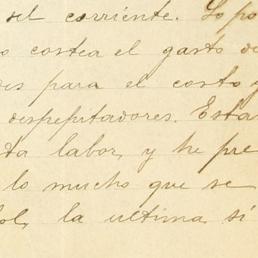 del corriente. Lo po
o costea el gasto de
des para el costo y
despepitadores. Esta
ta labor, y he pre
lo mucho que se
ol, la ultima si